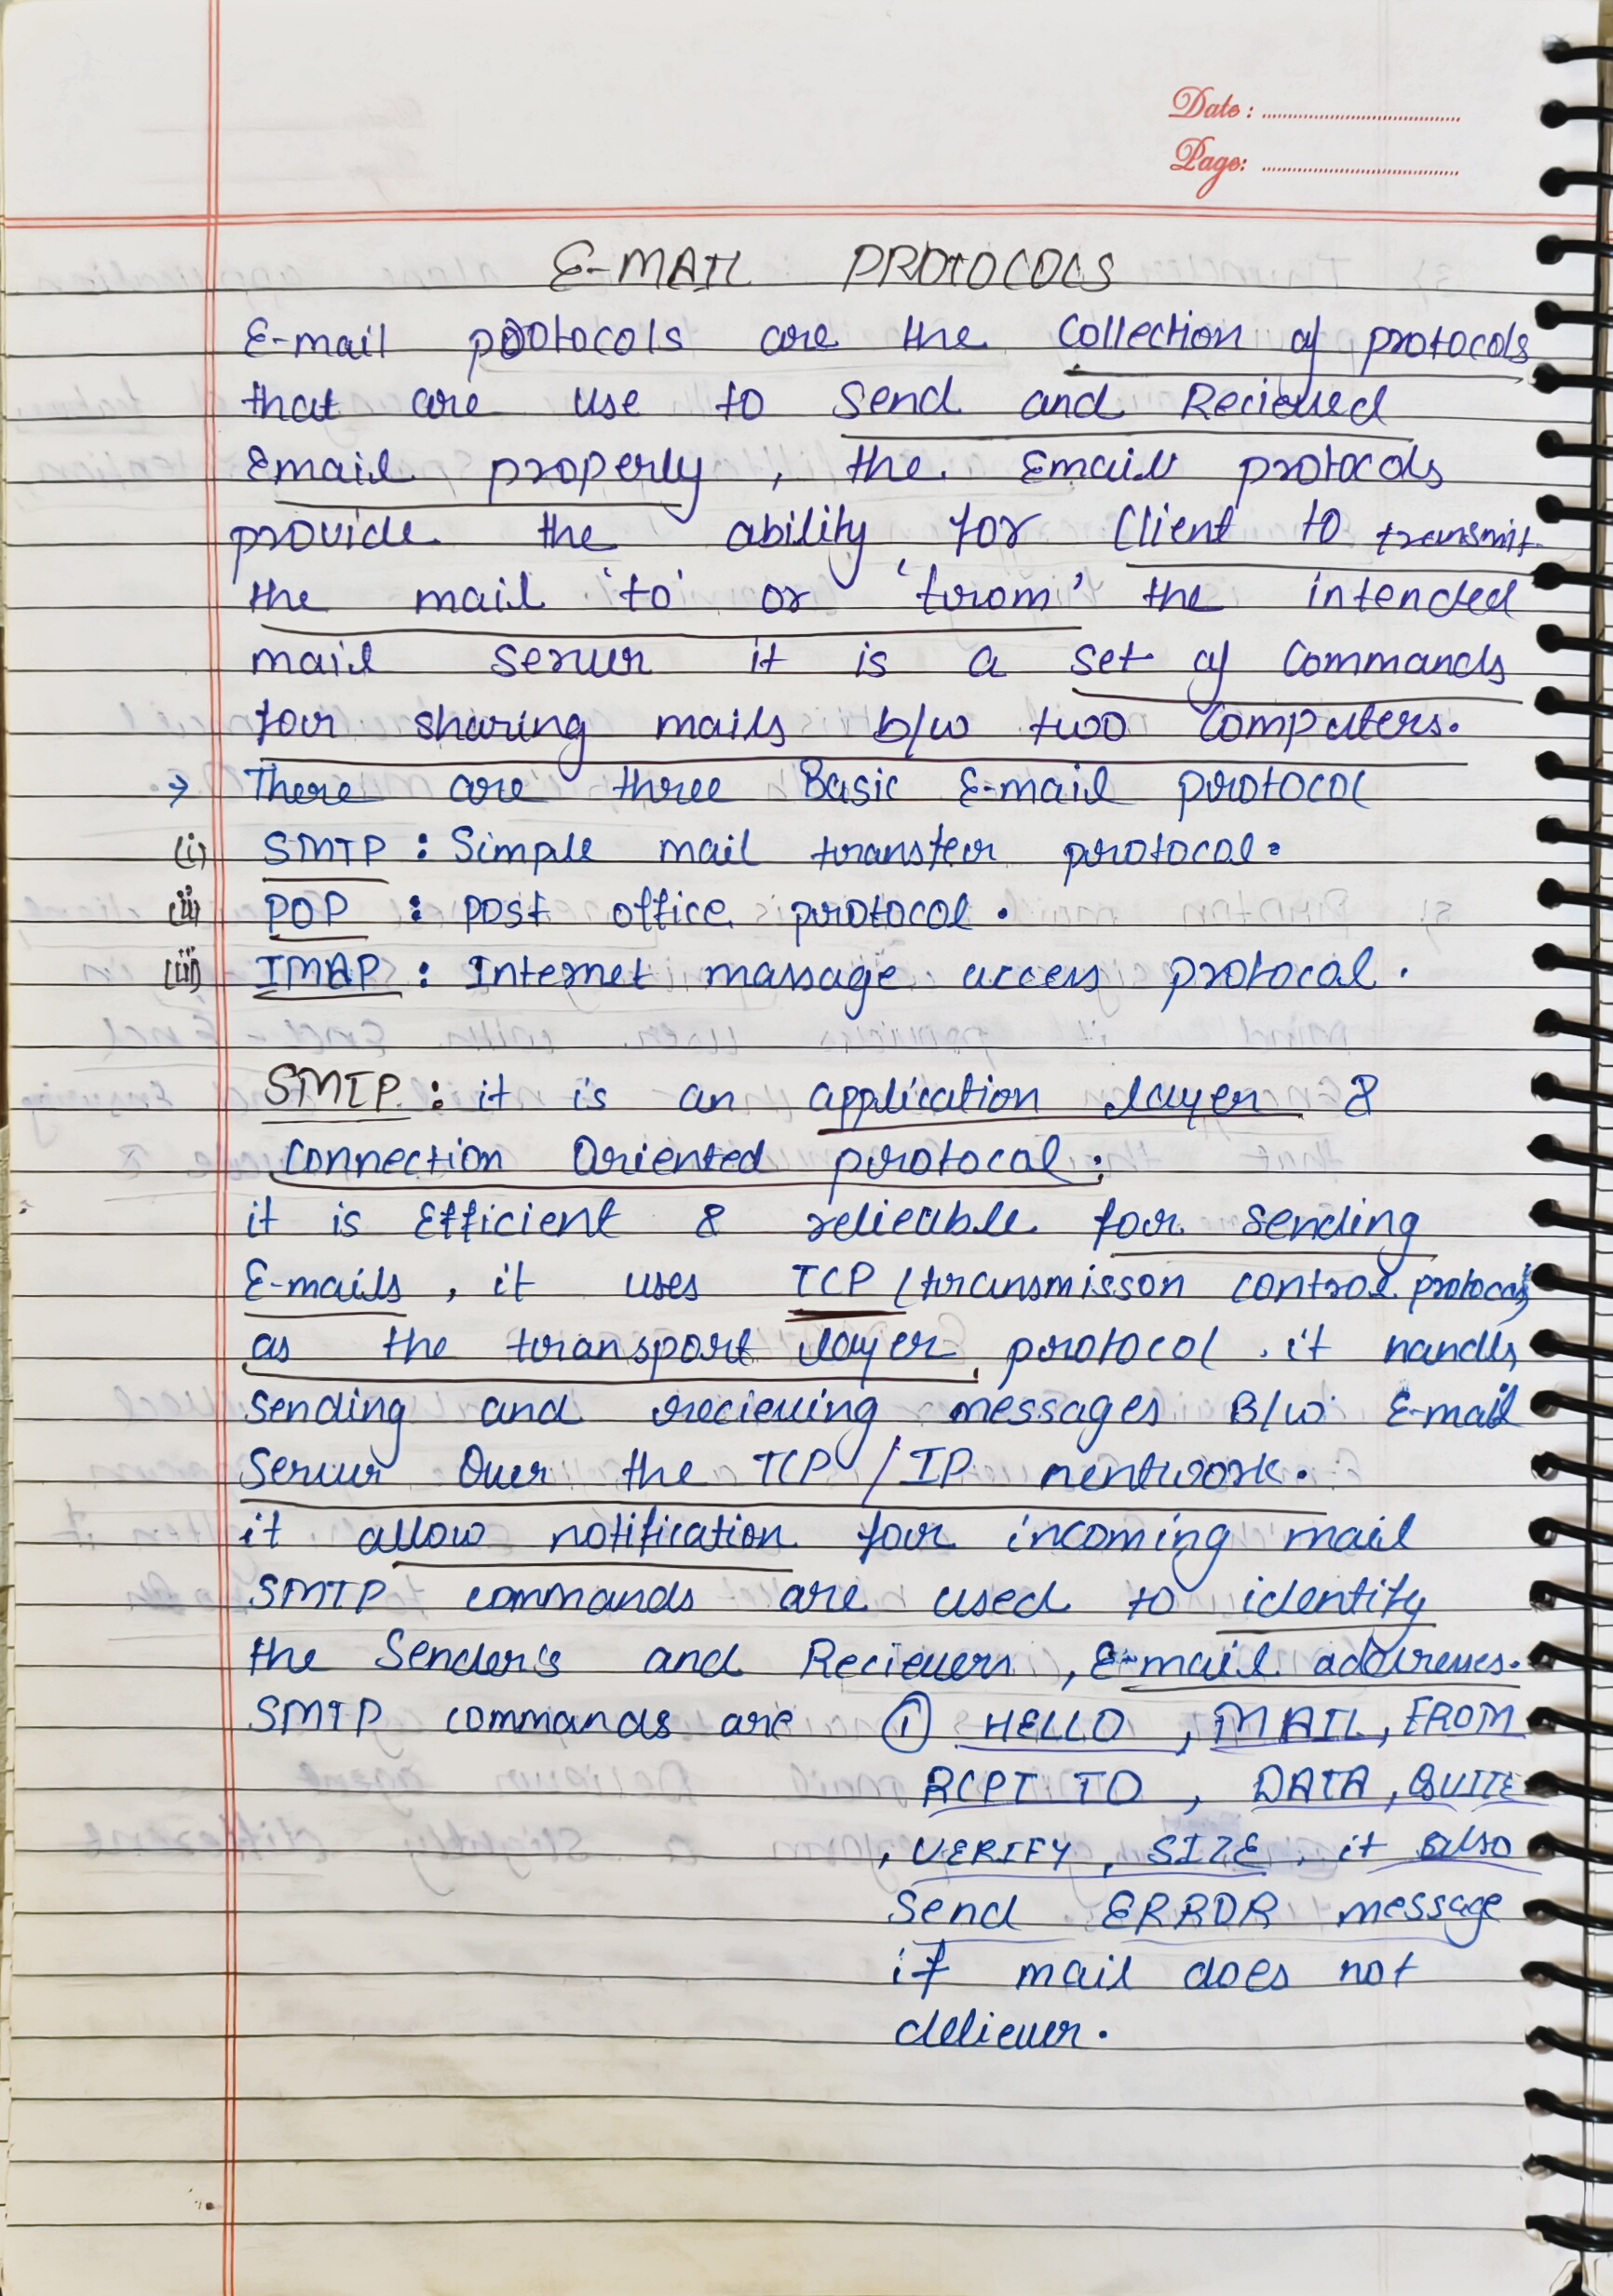 Date :
Page:
E-MAIL PROTOCOLS
E-mail protocols are the Collection of protocols
that are use to Send and Recieved
Email properly , the Email protocols
provide the ability for Client to transmit
the mail 'to' or 'from' the intended
mail server it is a set of Commands
for sharing mails b/w two Computers.
→ There are three Basic E-mail protocol
(i) SMTP : Simple mail transfer protocal.
(ii) POP : post office protocol.
(iii) IMAP : Internet massage access protocal.
SMTP : it is an application layer &
Connection Oriented protocal.
it is Efficient & relieable for sending
E-mails , it uses TCP (transmisson control protocol)
as the transport layer protocol . it handls
sending and recieving messages B/w E-mail
Server Over the TCP / IP nentwork.
it allow notification for incoming mail
SMTP commands are used to identify
the Sender's and Recievers , E-mail addresses.
SMTP commands are ① HELLO , MAIL, FROM
RCPT TO , DATA , QUITE
, VERIFY , SIZE , it also
Send ERROR message
if mail does not
deliever.